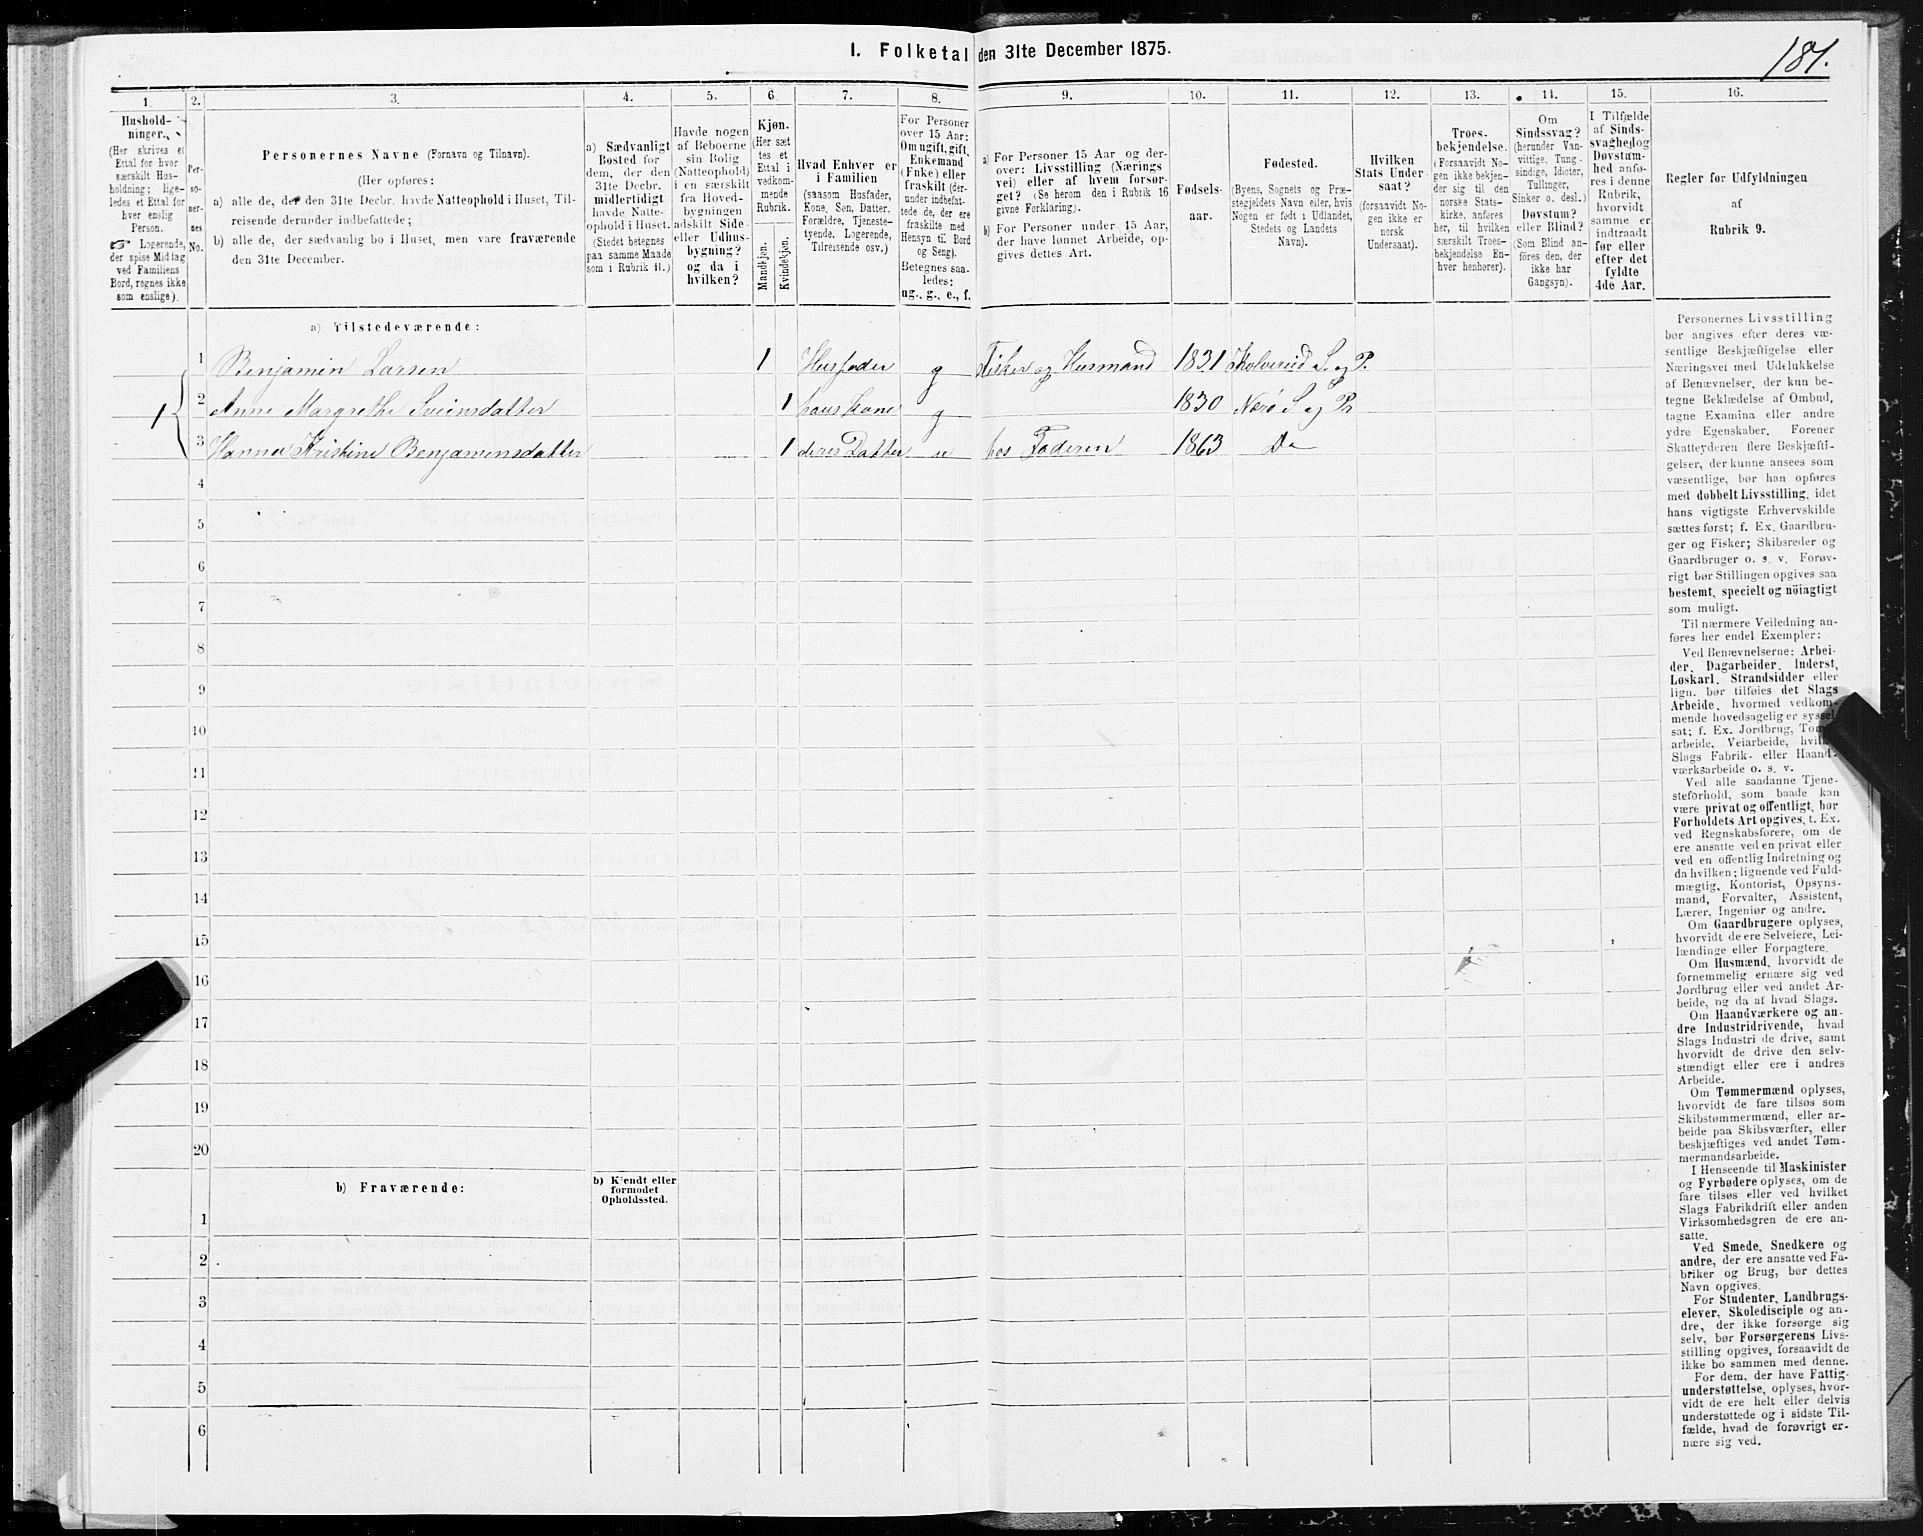 1. Folketal den 31te December 1875.
181.
1.
2.
3.
4.
5.
6.
7.
8.
9.
10.
11.
12.
13.
14.
15.
16.
Hushold-
ninger.
(Her skrives et
Ettal for hver
særskilt Hus-
holdning; lige-
ledes et Ettal for
hver enslig
Person.
☞ Logerende,
der spise Middag
ved Familiens
Bord, regnes ikke
som enslige).
Per-
so-
ner-
nes
No.
Personernes Navne (Fornavn og Tilnavn).
(Her opføres:
a) alle de, der den 31te Decbr. havde Natteophold i Huset, Til-
reisende derunder indbefattede;
b) alle de, der sædvanlig bo i Huset, men vare fraværende
den 31te December.
a) Sædvanligt
Bosted for
dem, der den
31te Decbr.
midlertidigt
havde Natte-
ophold i Huset.
(Stedet betegnes
paa samme Maade
som i Rubrik 11.)
Havde nogen
af Beboerne
sin Bolig
(Natteophold)
i en særskilt
fra Hoved-
bygningen
adskilt Side-
eller Udhus-
bygning?
og da i
hvilken?
Kjøn.
(Her sæt-
tes et
Ettal i
vedkom-
mende
Rubrik.
Mandkjøn.
Kvindekjøn.
Hvad Enhver er
i Familien
(saasom Husfader,
Kone, Søn, Datter,
Forældre, Tjeneste-
tyende, Logerende,
Tilreisende osv.)
For Personer
over 15 Aar:
Om ugift, gift,
Enkemand
(Enke) eller
fraskilt (der-
under indbefat-
tede de, der ere
fraskilte med
Hensyn til Bord
og Seng).
Betegnes saa-
ledes:
ug., g., e., f.
a) For Personer 15 Aar og der-
over: Livsstilling (Nærings
vei) eller af hvem forsør-
get? (Se herom den i Rubrik 16
givne Forklaring).
b) For Personer under 15 Aar,
der have lønnet Arbeide, op-
gives dettes Art.
Fødsels-
aar.
Fødested.
(Byens, Sognets og Præ-
stegjeldets Navn eller, hvis
Nogen er født i Udlandet,
Stedets og Landets
Navn).
Hvilken
Stats Under-
saat?
(hvis forsaavidt No-
gen ikke er
norsk
Undersaat).
Troes-
bekjendelse.
(Forsaavidt No-
gen ikke bekjen-
der sig til den
norske Stats-
kirke, anføres
her, til hvilken
særskilt Troes-
bekjendelse En-
hver henhører).
Om
Sindssvag?
(herunder Van-
vittige, Tung-
sindige, Idioter,
Tullinger,
Sinker o. desl.)
Døvstum?
eller Blind?
(Som Blind an-
føres den, der
ikke har
Gangsyn).
I Tilfælde
af Sinds-
svaghed og
Døvstum-
hed anfø-
res i denne
Rubrik,
hvorvidt
samme er
indtraadt
før eller
efter det
fyldte
4de Aar.
Regler for Udfyldningen
af
Rubrik 9.
a) Tilstedeværende:
1 Benjamin Larsen 1 Husfader g Fisker og Husmand 1831 Kolvereid S. og P.
1
2 Anne Margrethe Sveinsdatter 1 hans Kone g 1830 Nærø S og Pr
3 Hanna Kristine Benjaminsdatter 1 deres Datter u hos Faderen 1863 Do
4
5
6
7
8
9
10
11
12
13
14
15
16
17
18
19
20
b) Fraværende:
b) Kjendt eller
formodet
Opholdssted.
1
2
3
4
5
6
Personernes Livsstilling
bør angives efter deres væ-
sentlige Beskjæftigelse eller
Næringsvei med Udelukkelse
af Benævnelser, der kun be-
tegne Beklædelse af Ombud,
tagne Examina eller andre
ydre Egenskaber. Forener
Skatteyderen flere Beskjæfti-
gelser, der kunne ansees som
væsentlige, bør han opføres
med dobbelt Livsstilling, idet
hans vigtigste Erhvervskilde
sættes først; f. Ex. Gaardbru-
ger og Fisker; Skibsreder og
Gaardbruger o. s. v. Forøv-
rigt bør Stillingen opgives saa
bestemt, specielt og nöiagtigt
som muligt.
Til nærmere Veiledning an-
føres her endel Exempler:
Ved Benævnelserne: Arbei-
der, Dagarbeider, Inderst,
Løskarl, Strandsidder eller
lign. bør tilføies det Slags
Arbeide, hvormed vedkom-
mende hovedsagelig er syssel-
sat; f. Ex. Jordbrug, Tom-
arbeide, Veiarbeide, hvilket
Slags Fabrik- eller Haand-
værksarbeide o. s. v.
Ved alle saadanne Tjene-
steforhold, som baade kan
være privat og offentligt, bør
Forholdets Art opgives, t. Ex.
ved Regnskabsførere, om de
ere ansatte ved en privat eller
ved en offentlig Indretning og
da hvilken; lignende ved Fuld-
mægtig, Kontorist, Opsyns-
mand, Forvalter, Assistent,
Lærer, Ingeniør og andre.
Om Gaardbrugere oplyses,
hvorvidt de ere Selveiere, Lei-
lændinge eller Forpagtere.
Om Husmænd, hvorvidt de
fornemmelig ernære sig ved
Jordbrug eller ved andet Ar-
beide, og da af hvad Slags.
Om Haandværkere og an-
dre Industridrivende, hvad
Slags Industri de drive, samt
hvorvidt de drive den selv-
stændigt eller ere i andres
Arbeide.
Om Tømmermænd oplyses,
hvorvidt de fare tilsøs som
Skibstømmermænd, eller ar-
beide paa Skibsværfter, eller
beskjæftiges ved andet Tøm-
mermandsarbeide.
I Henseende til Maskinister
og Fyrbødere oplyses, om de
fare tilsøs eller ved hvilket
Slags Fabrikdrift eller anden
Virksomhedsgren de ere an-
satte.
Ved Smede, Snedkere og
andre, der ere ansatte ved Fa-
briker og Brug, bør dettes
Navn opgives.
For Studenter, Landbrugs-
elever, Skoledisciple og an-
dre, der ikke forsørge sig
selv, bør Forsørgerens Livs-
stilling opgives, forsaavidt de
ikke bo sammen med denne.
For dem, der have Fattig-
understøttelse, oplyses, hvor-
vidt de ere helt eller delvis
understøttede og i sidste Til-
fælde, hvad de forøvrigt er-
nære sig ved.